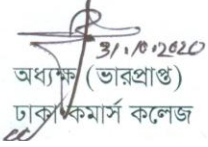 31.10.2020
অধ্যক্ষ (ভারপ্রাপ্ত)
ঢাকা কমার্স কলেজ